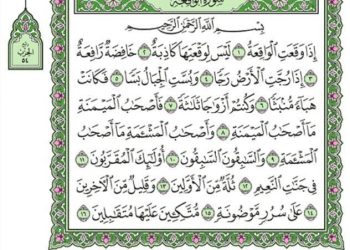 سُورَةُ الْوَاقِعَةِ
بِسْمِ اللَّهِ الرَّحْمَٰنِ الرَّحِيمِ
إِذَا وَقَعَتِ الْوَاقِعَةُ ١ لَيْسَ لِوَقْعَتِهَا كَاذِبَةٌ ٢ خَافِضَةٌ رَّافِعَةٌ
٣ إِذَا رُجَّتِ الْأَرْضُ رَجًّا ٤ وَبُسَّتِ الْجِبَالُ بَسًّا ٥ فَكَانَتْ
هَبَاءً مُّنبَثًّا ٦ وَكُنتُمْ أَزْوَاجًا ثَلَاثَةً ٧ فَأَصْحَابُ الْمَيْمَنَةِ
مَا أَصْحَابُ الْمَيْمَنَةِ ٨ وَأَصْحَابُ الْمَشْأَمَةِ مَا أَصْحَابُ
الْمَشْأَمَةِ ٩ وَالسَّابِقُونَ السَّابِقُونَ ١٠ أُولَٰئِكَ الْمُقَرَّبُونَ ١١
فِي جَنَّاتِ النَّعِيمِ ١٢ ثُلَّةٌ مِّنَ الْأَوَّلِينَ ١٣ وَقَلِيلٌ مِّنَ الْآخِرِينَ
١٤ عَلَىٰ سُرُرٍ مَّوْضُونَةٍ ١٥ مُّتَّكِئِينَ عَلَيْهَا مُتَقَابِلِينَ ١٦
الحزب
٥٤